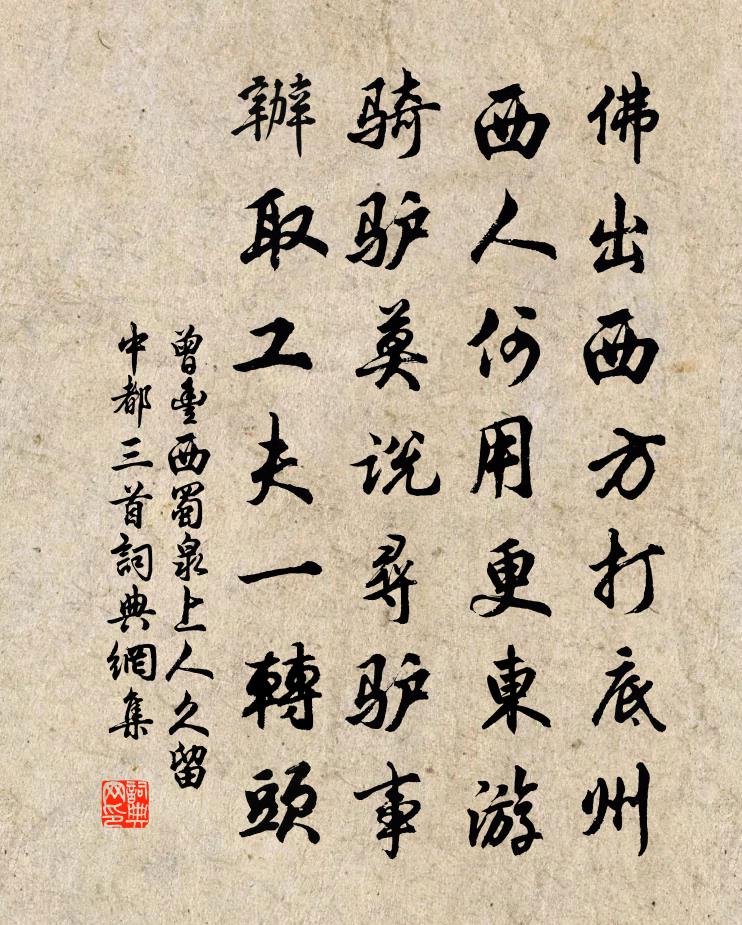 佛出西方打底州
西人何用更東游
骑驴莫说尋驴事
辦取工夫一轉頭
曾豊西蜀泉上人久留
中都三首詞典網集
詞典
网印